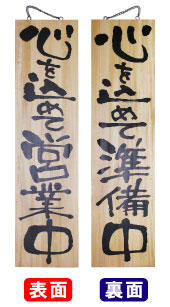 心を込めて営業中
心を込めて準備中
表面
裏面